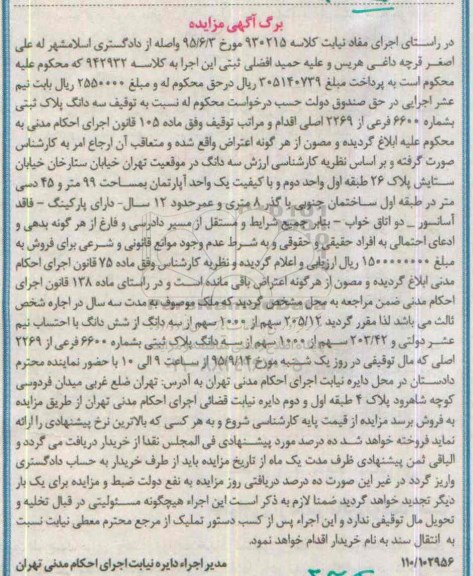 برگ آگهی مزایده
در راستای اجرای مفاد نیابت کلاسه ۹۳۰۲۱۵ مورخ ۹۵/۶/۳ واصله از دادگستری اسلامشهر له علی
اصغر قرچه داغی هریس و علیه حمید الفضلی ثبتی این اجرا به کلاسه ۹۴۲۹۳۲ که محکوم علیه
محکوم است به پرداخت مبلغ ۳۰۵۱۴۰۷۳۹ ریال درحق محکوم له و مبلغ ۲۵۵۰۰۰۰ ریال بابت نیم
عشر اجرایی در حق صندوق دولت حسب درخواست محکوم له نسبت به توقیف سه دانگ پلاک ثبتی
بشماره ۶۶۰۰ فرعی از ۲۲۶۹ اصلی اقدام و مراتب توقیف وفق ماده ۱۰۵ قانون اجرای احکام مدنی به
محکوم علیه ابلاغ گردیده و مصون از هر گونه اعتراض واقع شده و متعاقب آن ارجاع امر به کارشناس
صورت گرفته و بر اساس نظریه کارشناسی ارزش سه دانگ در موقعیت تهران خیابان ستارخان خیابان
ستایش پلاک ۲۶ طبقه اول واحد دوم و با کیفیت یک واحد آپارتمان بمساحت ۹۹ متر و ۴۵ دسی
متر در طبقه اول ساختمان جنوبی با گذر ۸ متری و عمرحدود ۱۲ سال- دارای پارکینگ – فاقد
آسانسور _ دو اتاق خواب – بنابر جمیع شرایط و مستقل از مسیر دادرسی و فارغ از هر گونه بدهی و
ادعای احتمالی به افراد حقیقی و حقوقی و به شرط عدم وجود موانع قانونی و شرعی برای فروش به
مبلغ ۱۵۰۰۰۰۰۰۰۰ ریال ارزیابی و اعلام گردیده و نظریه کارشناس وفق ماده ۷۵ قانون اجرای احکام
مدنی ابلاغ گردیده و مصون از هرگونه اعتراض باقی مانده است و در راستای ماده ۱۳۸ قانون اجرای
احکام مدنی ضمن مراجعه به محل مشخص گردید که ملک موصوف به مدت سه سال در اجاره شخص
ثالث می باشد لذا مقرر گردید ۲۰۵/۱۲ سهم از ۱۰۰۰ سهم از سه دانگ از شش دانگ با احتساب نیم
عشر دولتی و ۲۰۳/۴۲ سهم از ۱۰۰۰ سهم از سه دانگ پلاک ثبتی بشماره ۶۶۰۰ فرعی از ۲۲۶۹
اصلی که مال توقیفی در روز یک شنبه مورخ ۹۵/۹/۱۴ از ساعت ۹ الی ۱۰ با حضور نماینده محترم
دادستان در محل دایره نیابت اجرای احکام مدنی تهران به آدرس: تهران ضلع غربی میدان فردوسی
کوچه شاهرود پلاک ۴ طبقه اول و دوم دایره نیابت قضائی اجرای احکام مدنی تهران از طریق مزایده
به فروش برسد مزایده از قیمت پایه کارشناسی شروع و به هر کسی که بالاترین نرخ پیشنهادی را ارائه
نماید فروخته خواهد شد ده درصد مورد پیشنهادی فی المجلس نقدا از خریدار دریافت می گردد و
الباقی ثمن پیشنهادی ظرف مدت یک ماه از تاریخ مزایده باید از طرف خریدار به حساب دادگستری
واریز گردد در غیر این صورت ده درصد دریافتی روز مزایده به نفع دولت ضبط و مزایده برای یک بار
دیگر تجدید خواهد گردید ضمنا لازم به ذکر است این اجراء هیچگونه مسئولیتی در قبال تخلیه و
تحویل مال توقیفی ندارد و این اجراء پس از کسب دستور تملیک از مرجع محترم معطی نیابت نسبت
به انتقال سند به نام خریدار اقدام خواهد نمود.
۱۱۰/۱۰۲۹۵۶ مدیر اجراء دایره نیابت اجرای احکام مدنی تهران